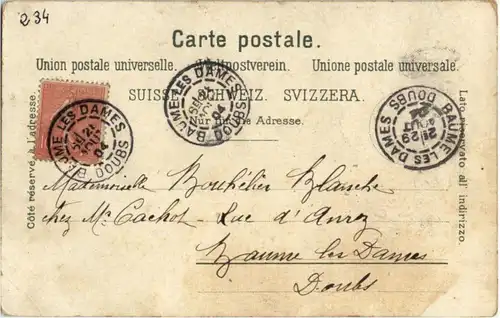 234
Carte postale.
Union postale universelle. Weltpostverein. Unione postale universale.
SUISSE. SCHWEIZ. SVIZZERA.
Nur für die Adresse.
Côté réservé à l'adresse.
Lato riservato all' indirizzo.
BAUME-LES-DAMES
DOUBS
04
BAUME-LES-DAMES
DOUBS
04
BAUME-LES-DAMES DOUBS
Mademoiselle Bouthélier Blanche
chez Mr Cachot - Rue d'Anroz
Baume les Dames
Doubs